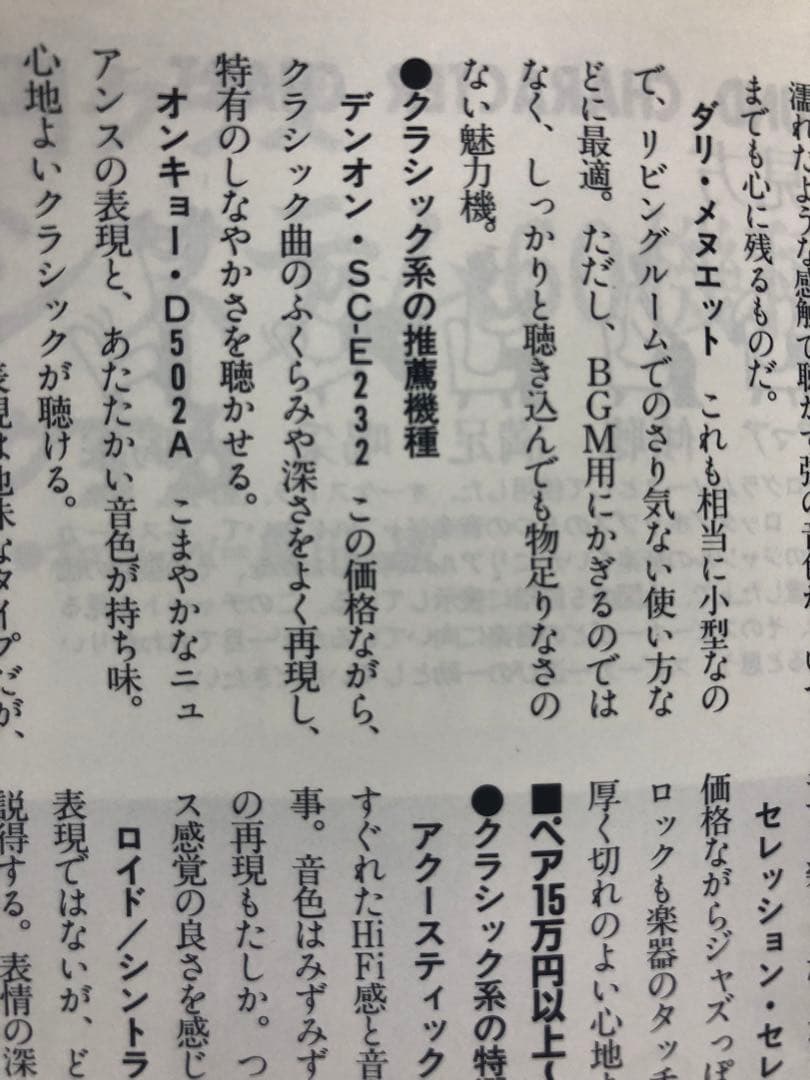 濡れたような感触で聴かで弦の音像が
までも心に残るものだ。
ダリ・メヌエット これも相当に小型なの
で、リビングルームでのさり気ない使い方な
どに最適。ただし、BGM用にかぎるのでは
なく、しっかりと聴き込んでも物足りなさの
ない魅力機。
●クラシック系の推薦機種
デンオン・SC-E232 この価格ながら、
クラシック曲のふくらみや深さをよく再現し、
特有のしなやかさを聴かせる。
オンキョー・D502A こまやかなニュ
アンスの表現と、あたたかい音色が持ち味。
心地よいクラシックが聴ける。
表現は地味なタイプだが、
セレッション・セレ
価格ながらジャズっぽ
ロックも楽器のタッチ
厚く切れのよい心地よ
■ペア15万円以上〜
●クラシック系の特選
アクースティック
すぐれたHiFi感と音
事。音色はみずみず
の再現もたしか。つ
ス感覚の良さを感じ
ロイド／シントラ
表現ではないが、ど
説得する。表情の深